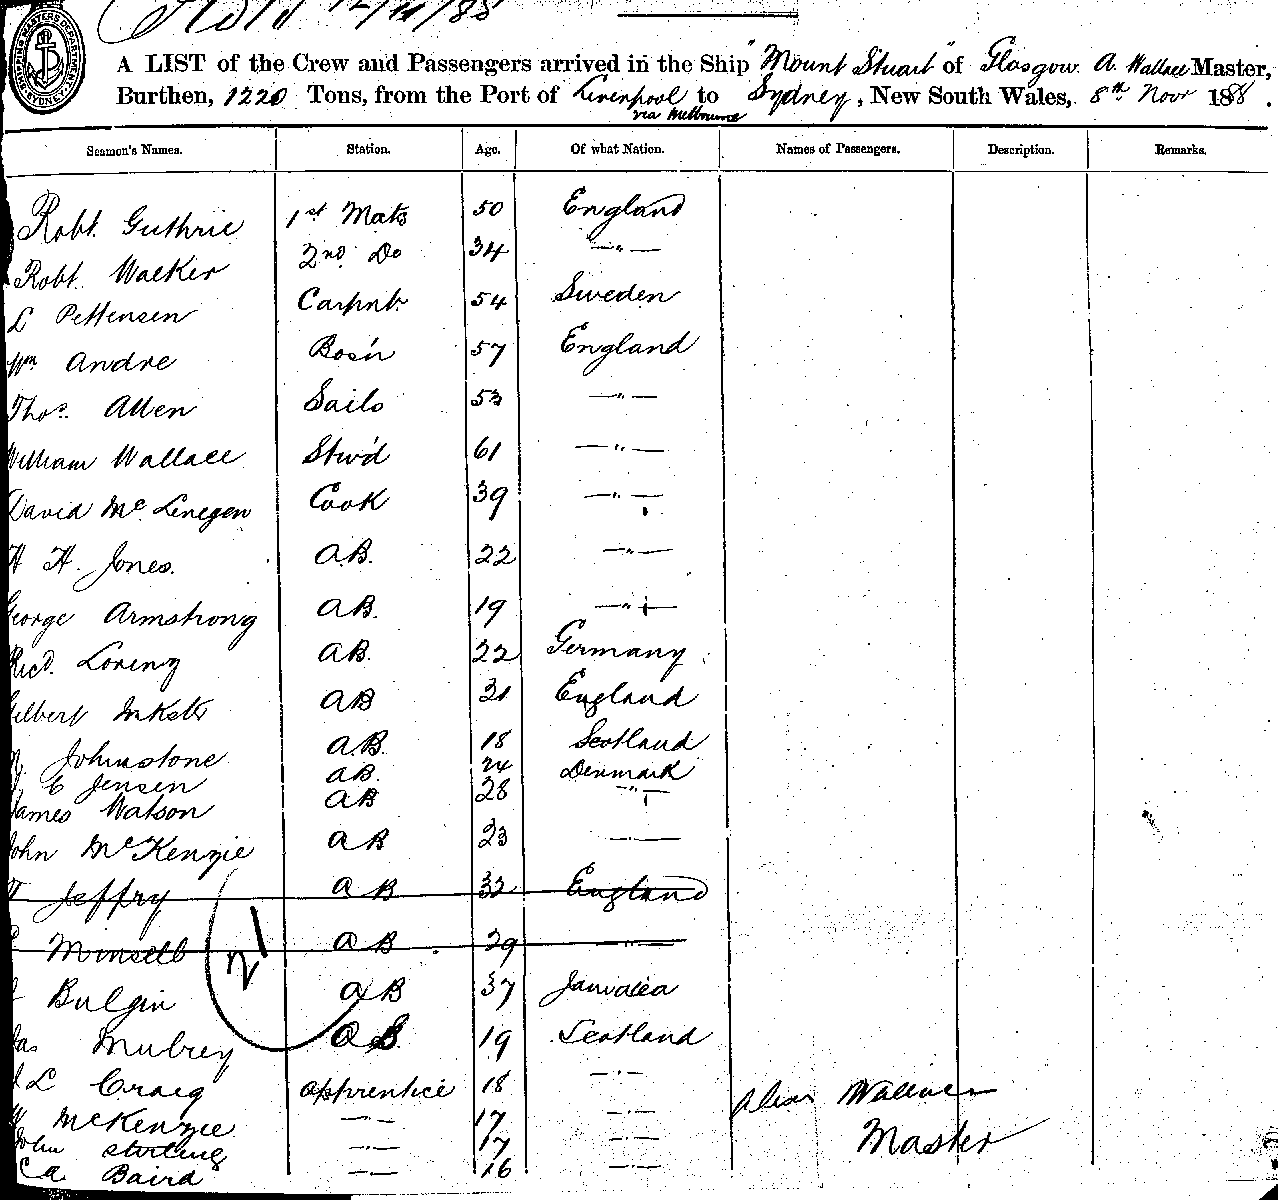 A LIST of the Crew and Passengers arrived in the Ship "Mount Stuart" of Glasgow A. Wallace Master,
Burthen, 1220 Tons, from the Port of Liverpool to Sydney, New South Wales, 8th Novr 1888.
via Melbourne
Seamen's Names. Station. Age. Of what Nation. Names of Passengers. Description. Remarks.
Robt. Guthrie 1st Mate 50 England
Robt. Walker 2nd Do 34 —"—
L Pettersen Carpntr 54 Sweden
Wm Andre Bos'n 57 England
Thos. Allen Sails 53 —"—
William Wallace Stw'd 61 —"—
David Mc Linegen Cook 39 —"—
H H. Jones. A.B. 22 —"—
George Armstrong AB. 19 —"—
Richd. Lorenz AB. 22 Germany
Gilbert AB 31 England
Johnstone A.B. 18 Scotland
C Jensen AB. 24 Denmark
James Watson AB 28 —"—
John McKenzie AB 23 ——
Jeffry AB 32 England
AB 29 —"—
21
Bulgin AB 37 Jamaica
Jas Mulrey 19 Scotland
J L Craig Apprentice 18 —"—
W McKenzie —"— 17 —"—
John Stirling —"— 17 —"—
Baird —"— 16 —"—
Alexr Wallace
Master